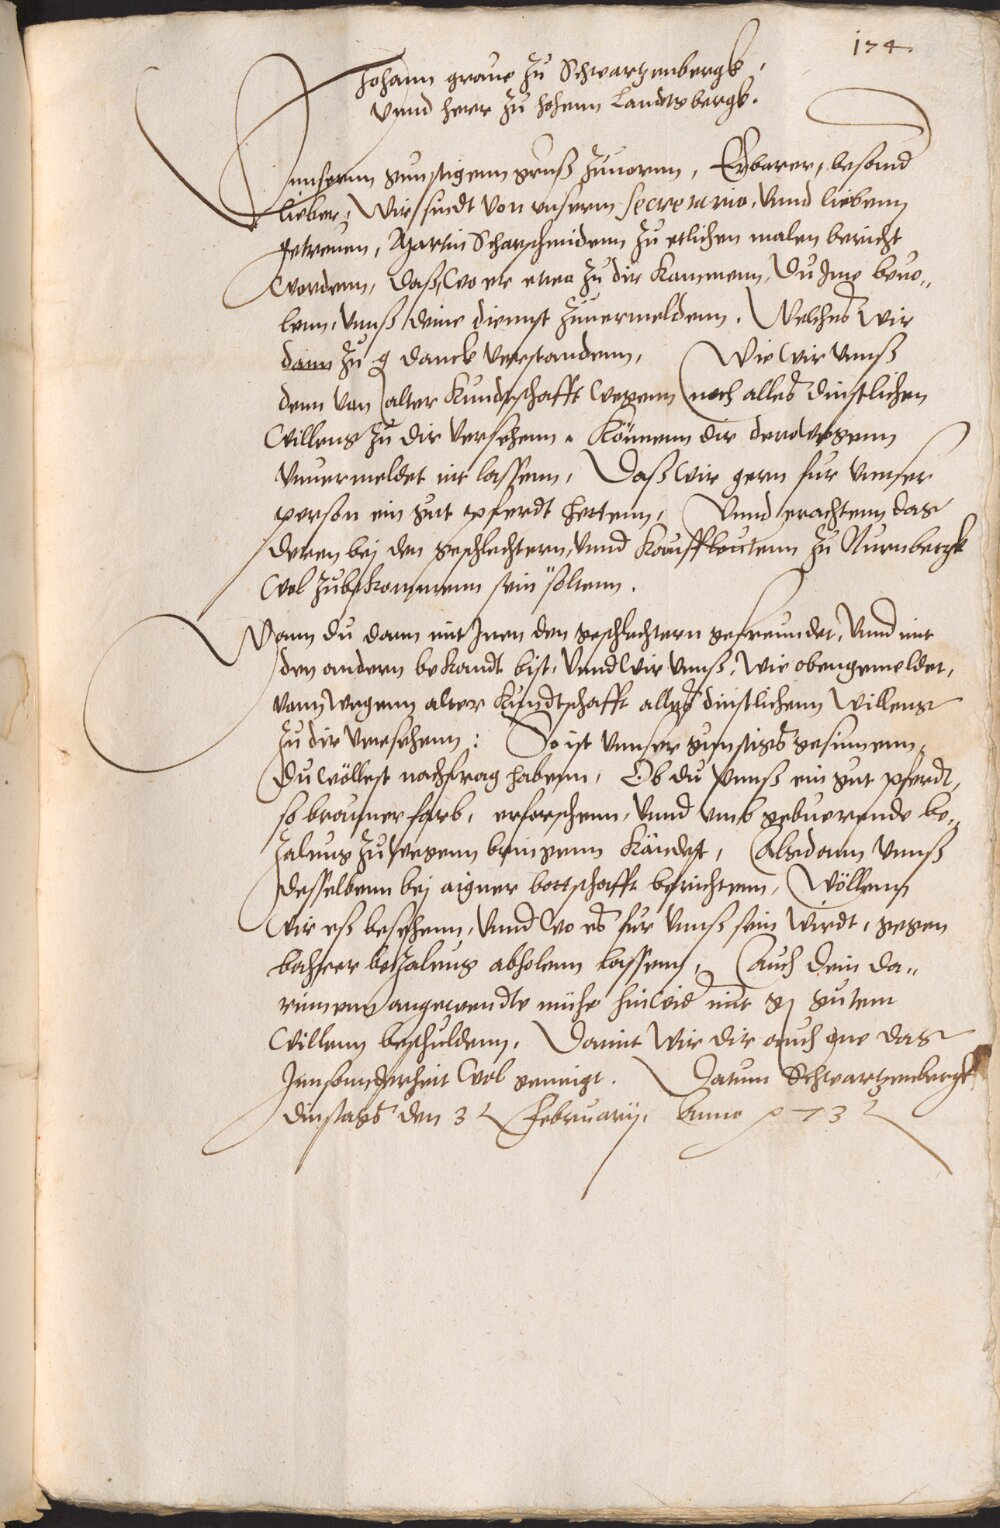 174
Johann graue zu Schwartzenbergk,
vnnd herr zu hohenn Landtsbergk.
Unnsernn gunstigenn gruß zuuornn, Erbarer, besond
lieber, Wir sindt von vnserm secretario, vnnd liebenn
getreuen, Martin Scharschmidenn zu etlichen malen bericht
wordenn, daß, wo ehr etwa zu dir kommenn, du Jme beuo„
lenn, vnnß deine diennst zuuermeldenn. Welches wir
dann zu g danck verstandenn, Wie wir vnnß
denn von alter kundtschafft wegenn noch alles dinstlichen
willens zu dir versehenn. Können dir derowegenn
vnuermeldet nit lassenn, Daß wir gern fur vnnser
person ein gut pferdt hettenn, Vnnd erachtenn das
deren bej den geschlechternn, vnnd kouffleutenn zu Nurnbergk
wol zubekommenn sein soltenn.
Wann du dann mit Jnen den geschlechtern gefreundet, vnnd mit
den andern bekandt bist, vnnd wir vnnß, wie obengemeldet,
vonn wegenn alter kundtschafft alles dinstlichenn willens
zu dir versehenn: So ist vnnser gunstigs gesinnenn,
Du wöllest nachfrag habenn, Ob du vnnß ein gut pferdt,
so brauner farb, erforschenn, vnnd vmb gebuerende be„
zalung zuwegenn bringenn kändest, Alsdann vnnß
desselbenn bej aigner bottschafft berichtenn, Wöllenn
wir eß besehenn, vnnd wo es fur vnnß sein wirdt, gegen
bahrer bezalung abholenn lassenn, Auch dein da„
rinnenn angewendte mühe hinwid mit g gutem
willenn beschuldenn, Damit wir dir auch one das
Jnnsonderheit wol geneigt. Datum Schwartzenbergk
dinstags den 3 Februarij, Anno 73